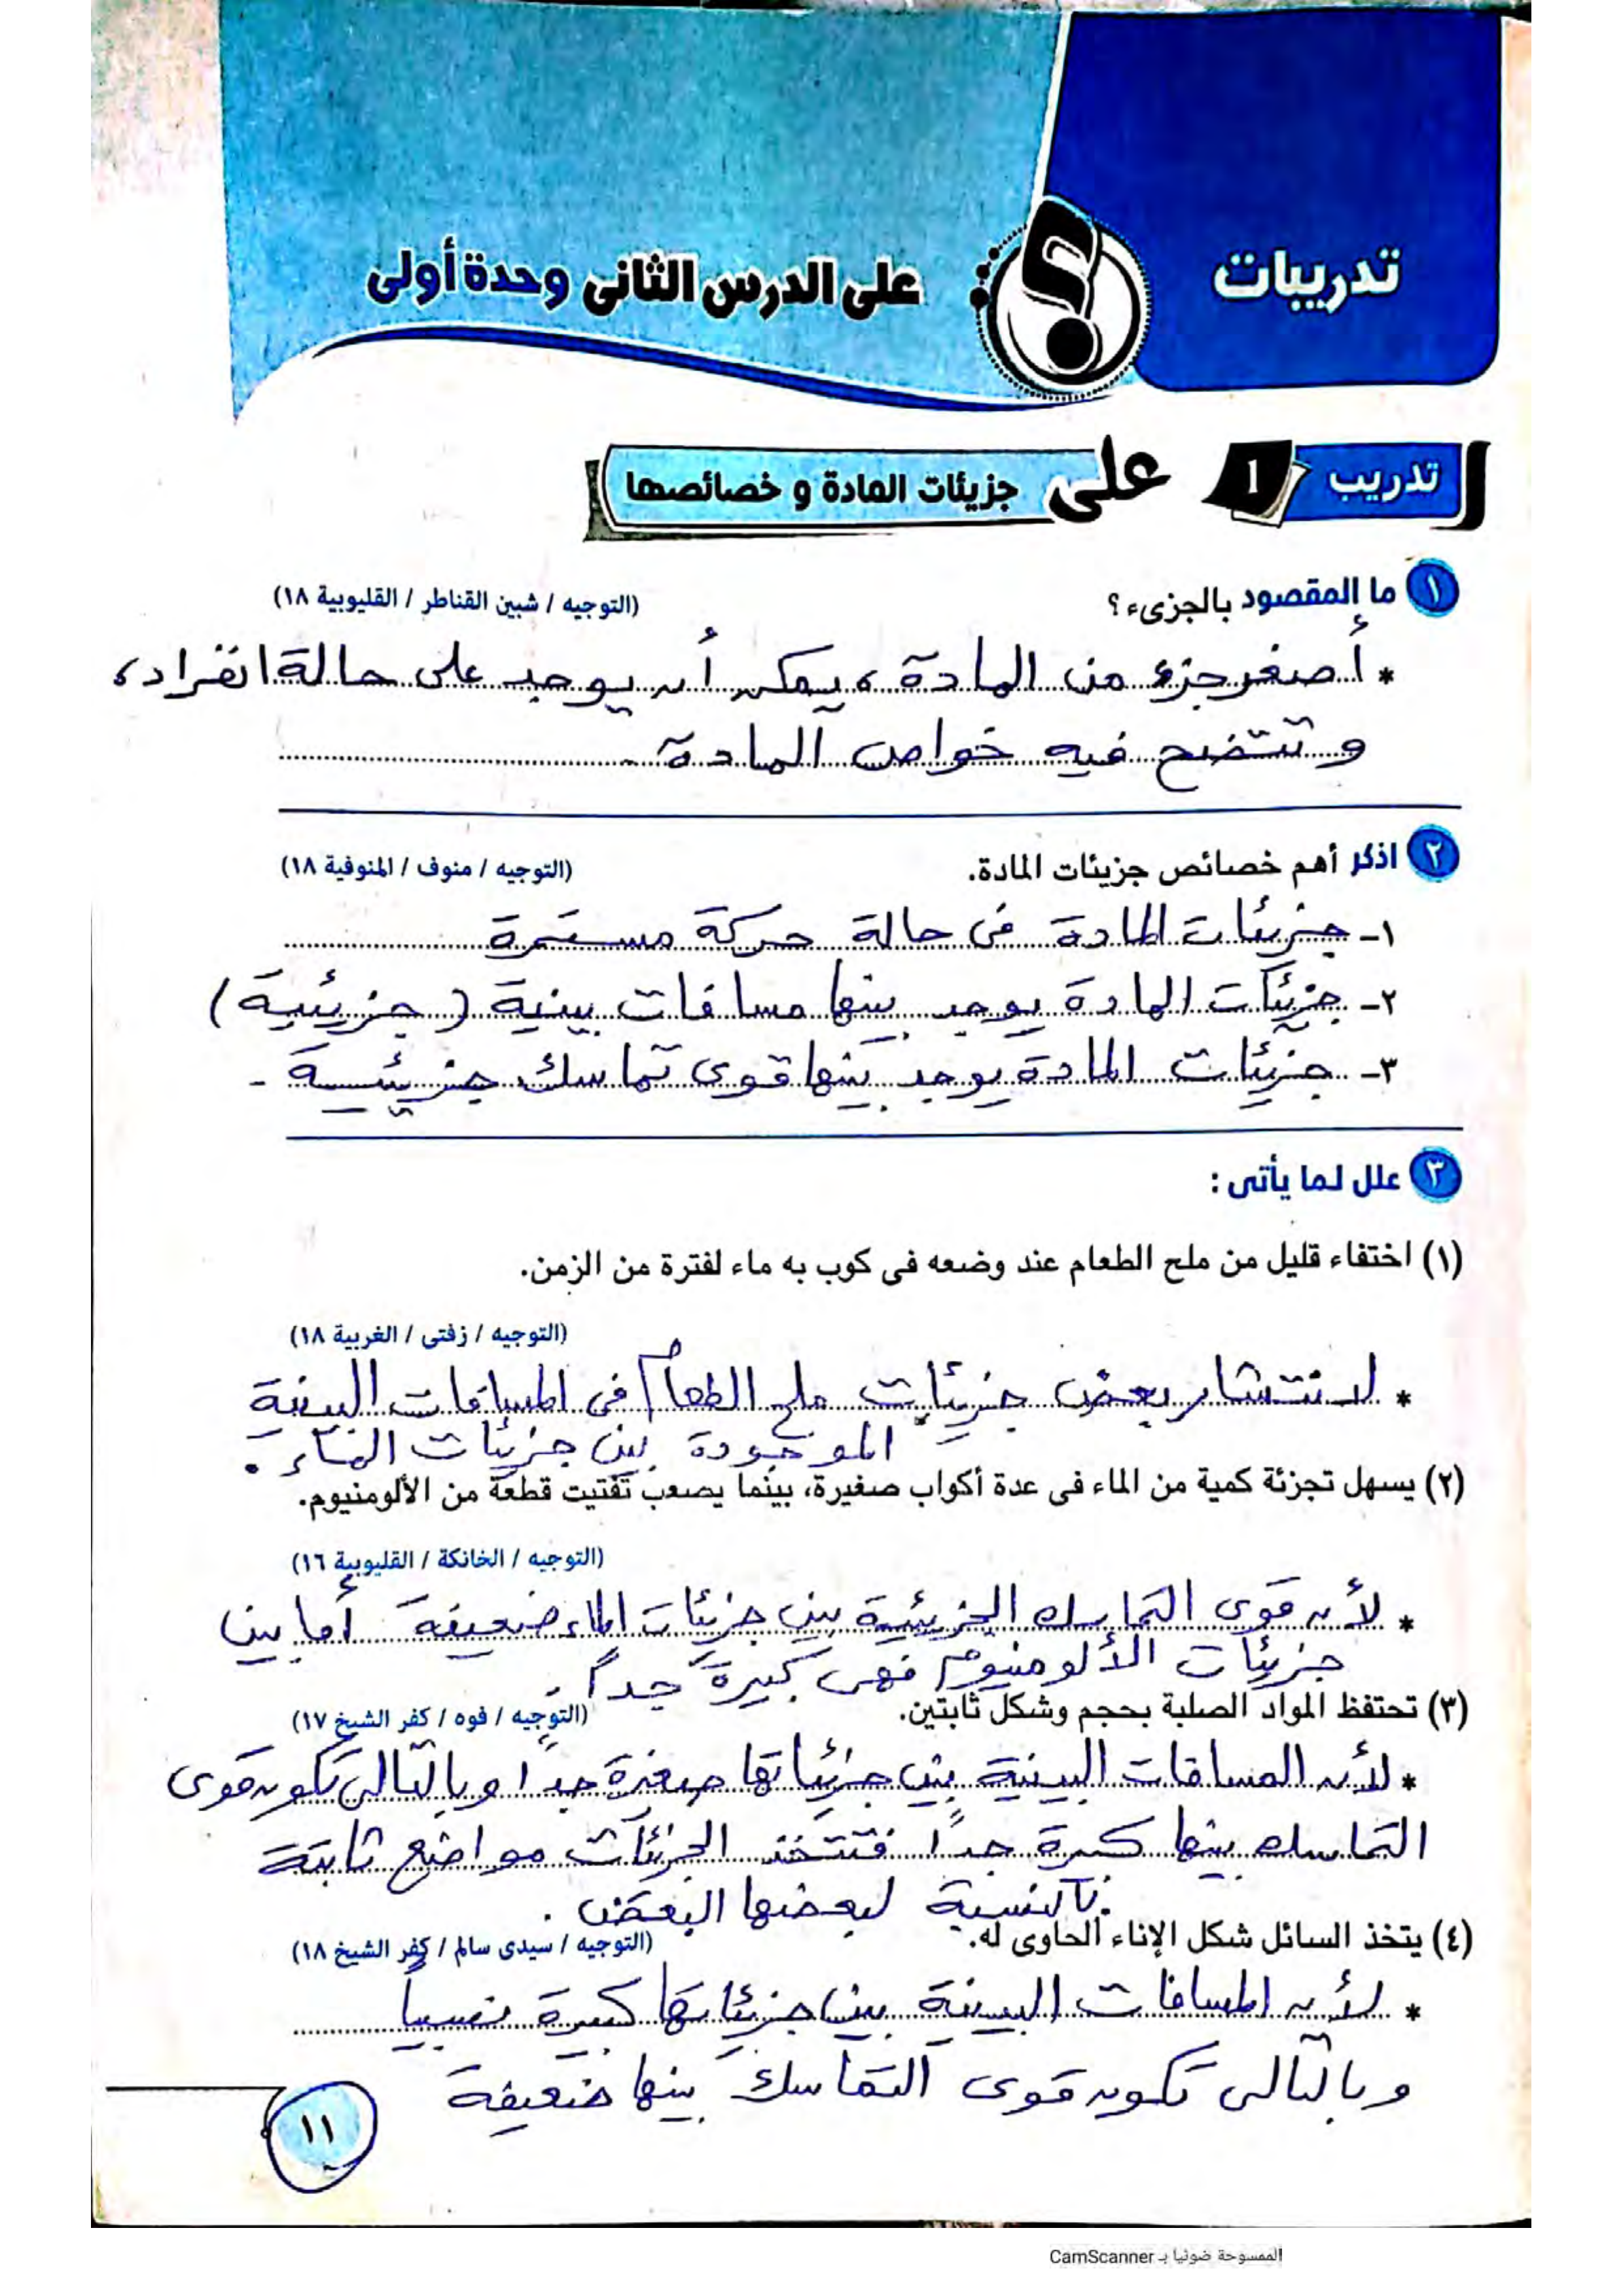 تدريبات
على الدرس الثانى وحدة أولى
تدريب ١ على جزيئات المادة و خصائصها
١ ما المقصود بالجزىء ؟ (التوجيه / شبين القناطر / القليوبية ١٨)
* أصغر جزء من المادة ، يمكن أن يوجد على حالة انفراد ،
و تتضح فيه خواص المادة .
٢ اذكر أهم خصائص جزيئات المادة. (التوجيه / منوف / المنوفية ١٨)
١- جزيئات المادة فى حالة حركة مستمرة
٢- جزيئات المادة يوجد بينها مسافات بينية (جزيئية)
٣- جزيئات المادة يوجد بينها قوى تماسك جزيئية .
٣ علل لما يأتى :
(١) اختفاء قليل من ملح الطعام عند وضعه فى كوب به ماء لفترة من الزمن.
(التوجيه / زفتى / الغربية ١٨)
* لانتشار بعض جزيئات ملح الطعام فى المسافات البينية
الموجودة بين جزيئات الماء .
(٢) يسهل تجزئة كمية من الماء فى عدة أكواب صغيرة، بينما يصعب تفتيت قطعة من الألومنيوم.
(التوجيه / الخانكة / القليوبية ١٦)
* لأن قوى التماسك الجزيئية بين جزيئات الماء ضعيفة أما بين
جزيئات الألومنيوم فهى كبيرة جداً .
(٣) تحتفظ المواد الصلبة بحجم وشكل ثابتين. (التوجيه / فوه / كفر الشيخ ١٧)
* لأن المسافات البينية بين جزيئاتها صغيرة جداً وبالتالى تكون قوى
التماسك بينها كبيرة جداً فتتخذ الجزيئات مواضع ثابتة
بالنسبة لبعضها البعض .
(٤) يتخذ السائل شكل الإناء الحاوى له. (التوجيه / سيدى سالم / كفر الشيخ ١٨)
* لأن المسافات البينية بين جزيئاتها كبيرة نسبياً
وبالتالى تكون قوى التماسك بينها ضعيفة
١١
الممسوحة ضوئيا بـ CamScanner